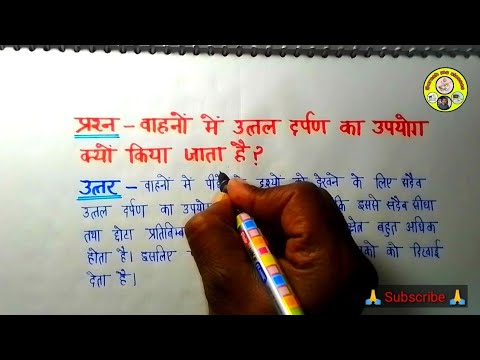 प्रश्न – वाहनों में उत्तल दर्पण का उपयोग
क्यों किया जाता है?
उत्तर – वाहनों में दृश्यों को देखने के लिए सदैव
उत्तल दर्पण का इससे सदैव सीधा
तथा छोटा बहुत अधिक
होता है। इसलिए को दिखाई
देता है।
🙏 Subscribe 🙏